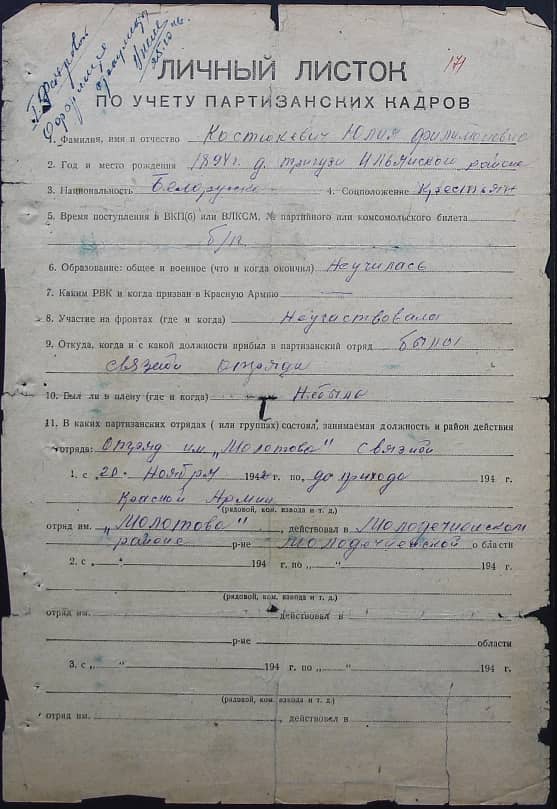 т. Фактровой
Оформице
25.10.46.
171
ЛИЧНЫЙ ЛИСТОК
ПО УЧЕТУ ПАРТИЗАНСКИХ КАДРОВ
1. Фамилия, имя и отчество Костюкевич Юлия Филимоновна
2. Год и место рождения 1894г. д. Тригузи Ильянской районе
3. Национальность Белоруска 4. Соцположение Крестьян
5. Время поступления в ВКП(б) или ВЛКСМ, № партийного или комсомольского билета
б/п
6. Образование: общее и военное (что и когда окончил) Неучилась
7. Каким РВК и когда призван в Красную Армию —
8. Участие на фронтах (где и когда) Неучаствовала
9. Откуда, когда и с какой должности прибыл в партизанский отряд была
связной отряда
10. Был ли в плену (где и когда) Небыла
11. В каких партизанских отрядах (или группах) состоял, занимаемая должность и район действия
отряда: Отряд им. „Молотова" связной
1. с „20" Ноября 1942 г. по „ до прихода 194 г.
Красной Армии
(рядовой, ком. взвода и т. д.)
отряд им. „Молотова", действовал в Молодечненском
районе р-не Молодечненской области
2. с „ " 194 г. по „ " 194 г.
(рядовой, ком. взвода и т. д.)
отряд им. , действовал в
р-не области
3. с „ " 194 г. по „ " 194 г.
(рядовой, ком. взвода и т. д.)
отряд им. , действовал в